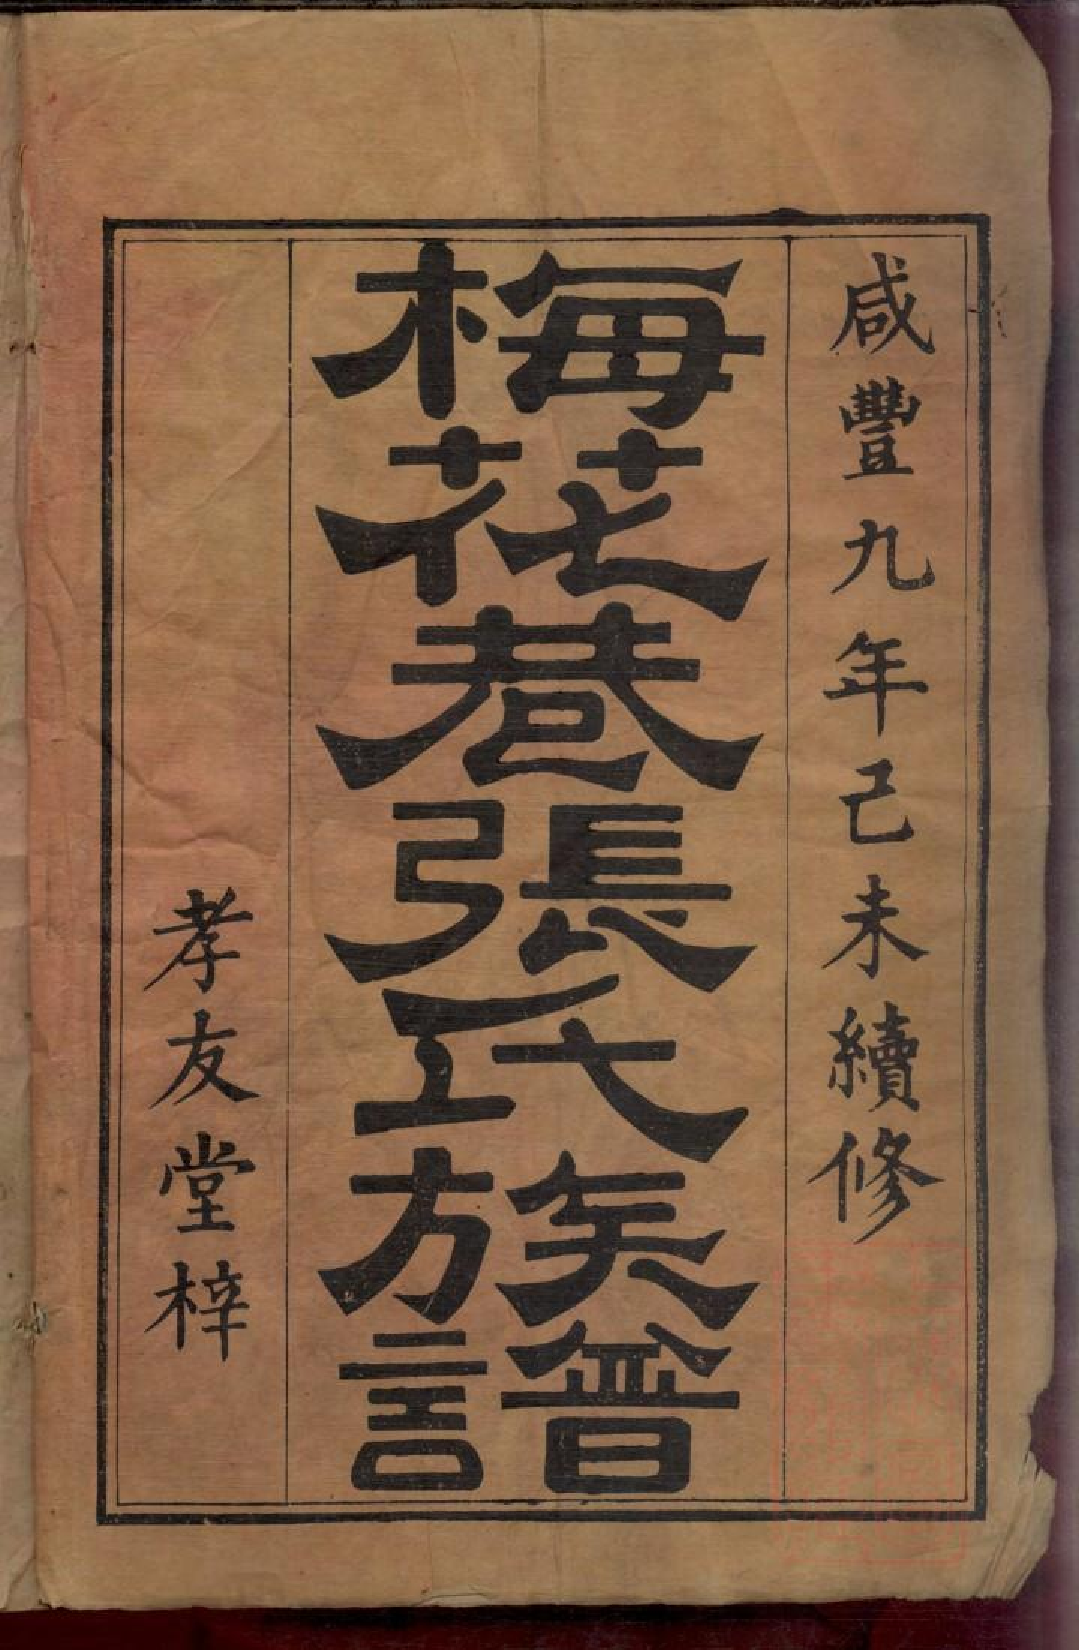 咸豐九年己未續修
梅花巷張氏族譜
孝友堂梓